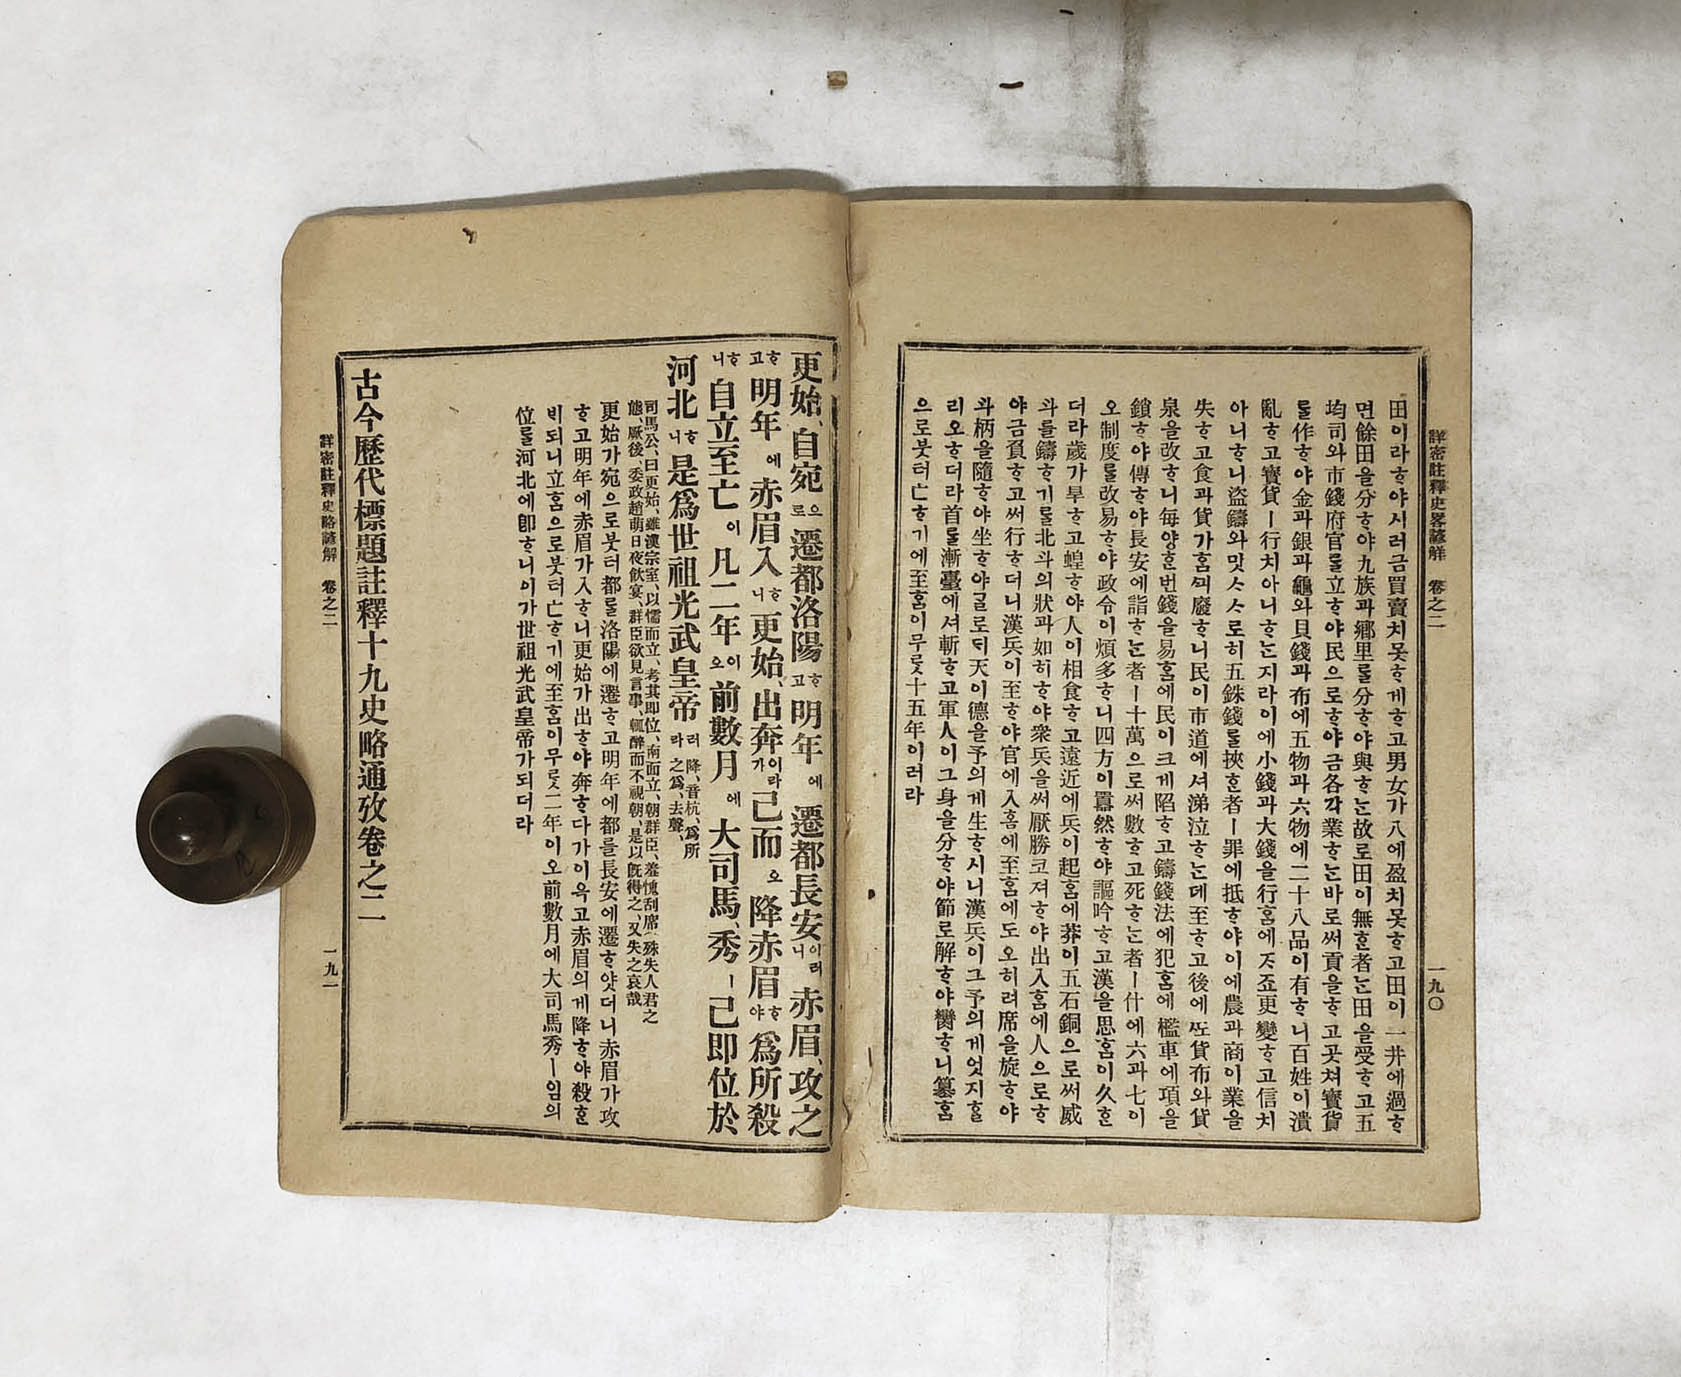 詳密註釋史畧諺解 卷之二 一九〇
田이라ᄒᆞ야시러금買賣치못ᄒᆞ게ᄒᆞ고男女가八에盈치못ᄒᆞ고田이一井에過ᄒᆞ
면餘田을分ᄒᆞ야九族과鄕里를分ᄒᆞ야與ᄒᆞ는故로田이無ᄒᆞᆫ者는田을受ᄒᆞ고五
均司와市錢府官를立ᄒᆞ야民으로ᄒᆞ야금各각業ᄒᆞ는바로써貢을ᄒᆞ고곳쳐寶貨
를作ᄒᆞ야金과銀과龜와貝錢과布에五物과六物에二十八品이有ᄒᆞ니百姓이潰
亂ᄒᆞ고寶貨ㅣ行치아니ᄒᆞ는지라이에小錢과大錢을行홈에ᄌᆞ조更變ᄒᆞ고信치
아니ᄒᆞ니盜鑄와밋ᄉᆞᄉᆞ로히五銖錢를挾ᄒᆞᆫ者ㅣ罪에抵ᄒᆞ야이에農과商이業을
失ᄒᆞ고食과貨가홈ᄭᅴ廢ᄒᆞ니民이市道에셔涕泣ᄒᆞ는데至ᄒᆞ고後에ᄯᅩ貨布와貨
泉을改ᄒᆞ니每양ᄒᆞᆫ번錢을易홈에民이크게陷ᄒᆞ고鑄錢法에犯홈에檻車에項을
鎖ᄒᆞ야傳ᄒᆞ야長安에詣ᄒᆞ는者ㅣ十萬으로써數ᄒᆞ고死ᄒᆞ는者ㅣ什에六과七이
오制度를改易ᄒᆞ야政令이煩多ᄒᆞ니四方이囂然ᄒᆞ야謳吟ᄒᆞ고漢을思홈이久ᄒᆞᆫ
더라歲가旱ᄒᆞ고蝗ᄒᆞ야人이相食ᄒᆞ고遠近에兵이起홈에莽이五石銅으로써威
斗를鑄ᄒᆞ기를北斗의狀과如히ᄒᆞ야衆兵을써厭勝코져ᄒᆞ야出入홈에人으로ᄒᆞ
야금負ᄒᆞ고써行ᄒᆞ더니漢兵이至ᄒᆞ야官에入홈에至홈에도오히려席을旋ᄒᆞ야
斗柄을隨ᄒᆞ야坐ᄒᆞ야ᄀᆞᆯ로ᄃᆡ天이德을予의게生ᄒᆞ시니漢兵이그予의게엇지ᄒᆞᆯ
리오ᄒᆞ더라首를漸臺에셔斬ᄒᆞ고軍人이그身을分ᄒᆞ야節로解ᄒᆞ야臠ᄒᆞ니簒홈
으로붓터亡ᄒᆞ기에至홈이무릇十五年이러라
更始、自宛으로遷都洛陽ᄒᆞ고明年에遷都長安이러니赤眉、攻之
ᄒᆞ고明年에赤眉入ᄒᆞ니更始、出奔이라가已而오降赤眉ᄒᆞ야爲所殺
ᄒᆞ니自立至亡이凡二年이오前數月에大司馬、秀ㅣ已即位於
河北ᄒᆞ니是爲世祖光武皇帝러라降、音杭、爲所之爲、去聲、
司馬公、曰更始、雖漢宗室、以懦而立、考其即位、南面立、朝群臣、羞愧刮席、殊失人君之
態、厥後、委政趙萌、日夜飮宴、群臣欲見言事、輒醉而不視朝、是以旣得之、又失之哀哉
更始가宛으로붓터都를洛陽에遷ᄒᆞ고明年에都를長安에遷ᄒᆞ얏더니赤眉가攻
ᄒᆞ고明年에赤眉가入ᄒᆞ니更始가出ᄒᆞ야奔ᄒᆞ다가이윽고赤眉의게降ᄒᆞ야殺ᄒᆞᆫ
비되니立홈으로붓터亡ᄒᆞ기에至홈이무릇二年이오前數月에大司馬秀ㅣ임의
位를河北에即ᄒᆞ니이가世祖光武皇帝가되더라
古今歷代標題註釋十九史略通攷卷之二
詳密註釋史略諺解 卷之二 一九一